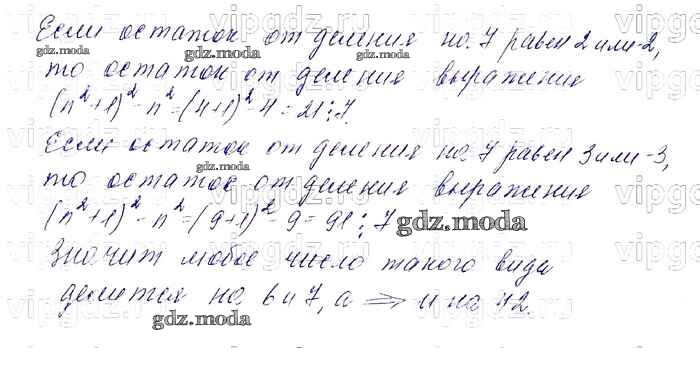 Если остаток от деления на 7 равен 2 или -2,
то остаток от деления выражения
(n²+1)² - n² = (4+1)² - 4 = 21 ⋮ 7.
Если остаток от деления на 7 равен 3 или -3,
то остаток от деления выражения
(n²+1)² - n² = (9+1)² - 9 = 91 ⋮ 7
Значит любое число такого вида
делится на 6 и 7, а ⇒ и на 42.
gdz.moda
gdz.moda
gdz.moda
gdz.moda
gdz.moda
gdz.moda